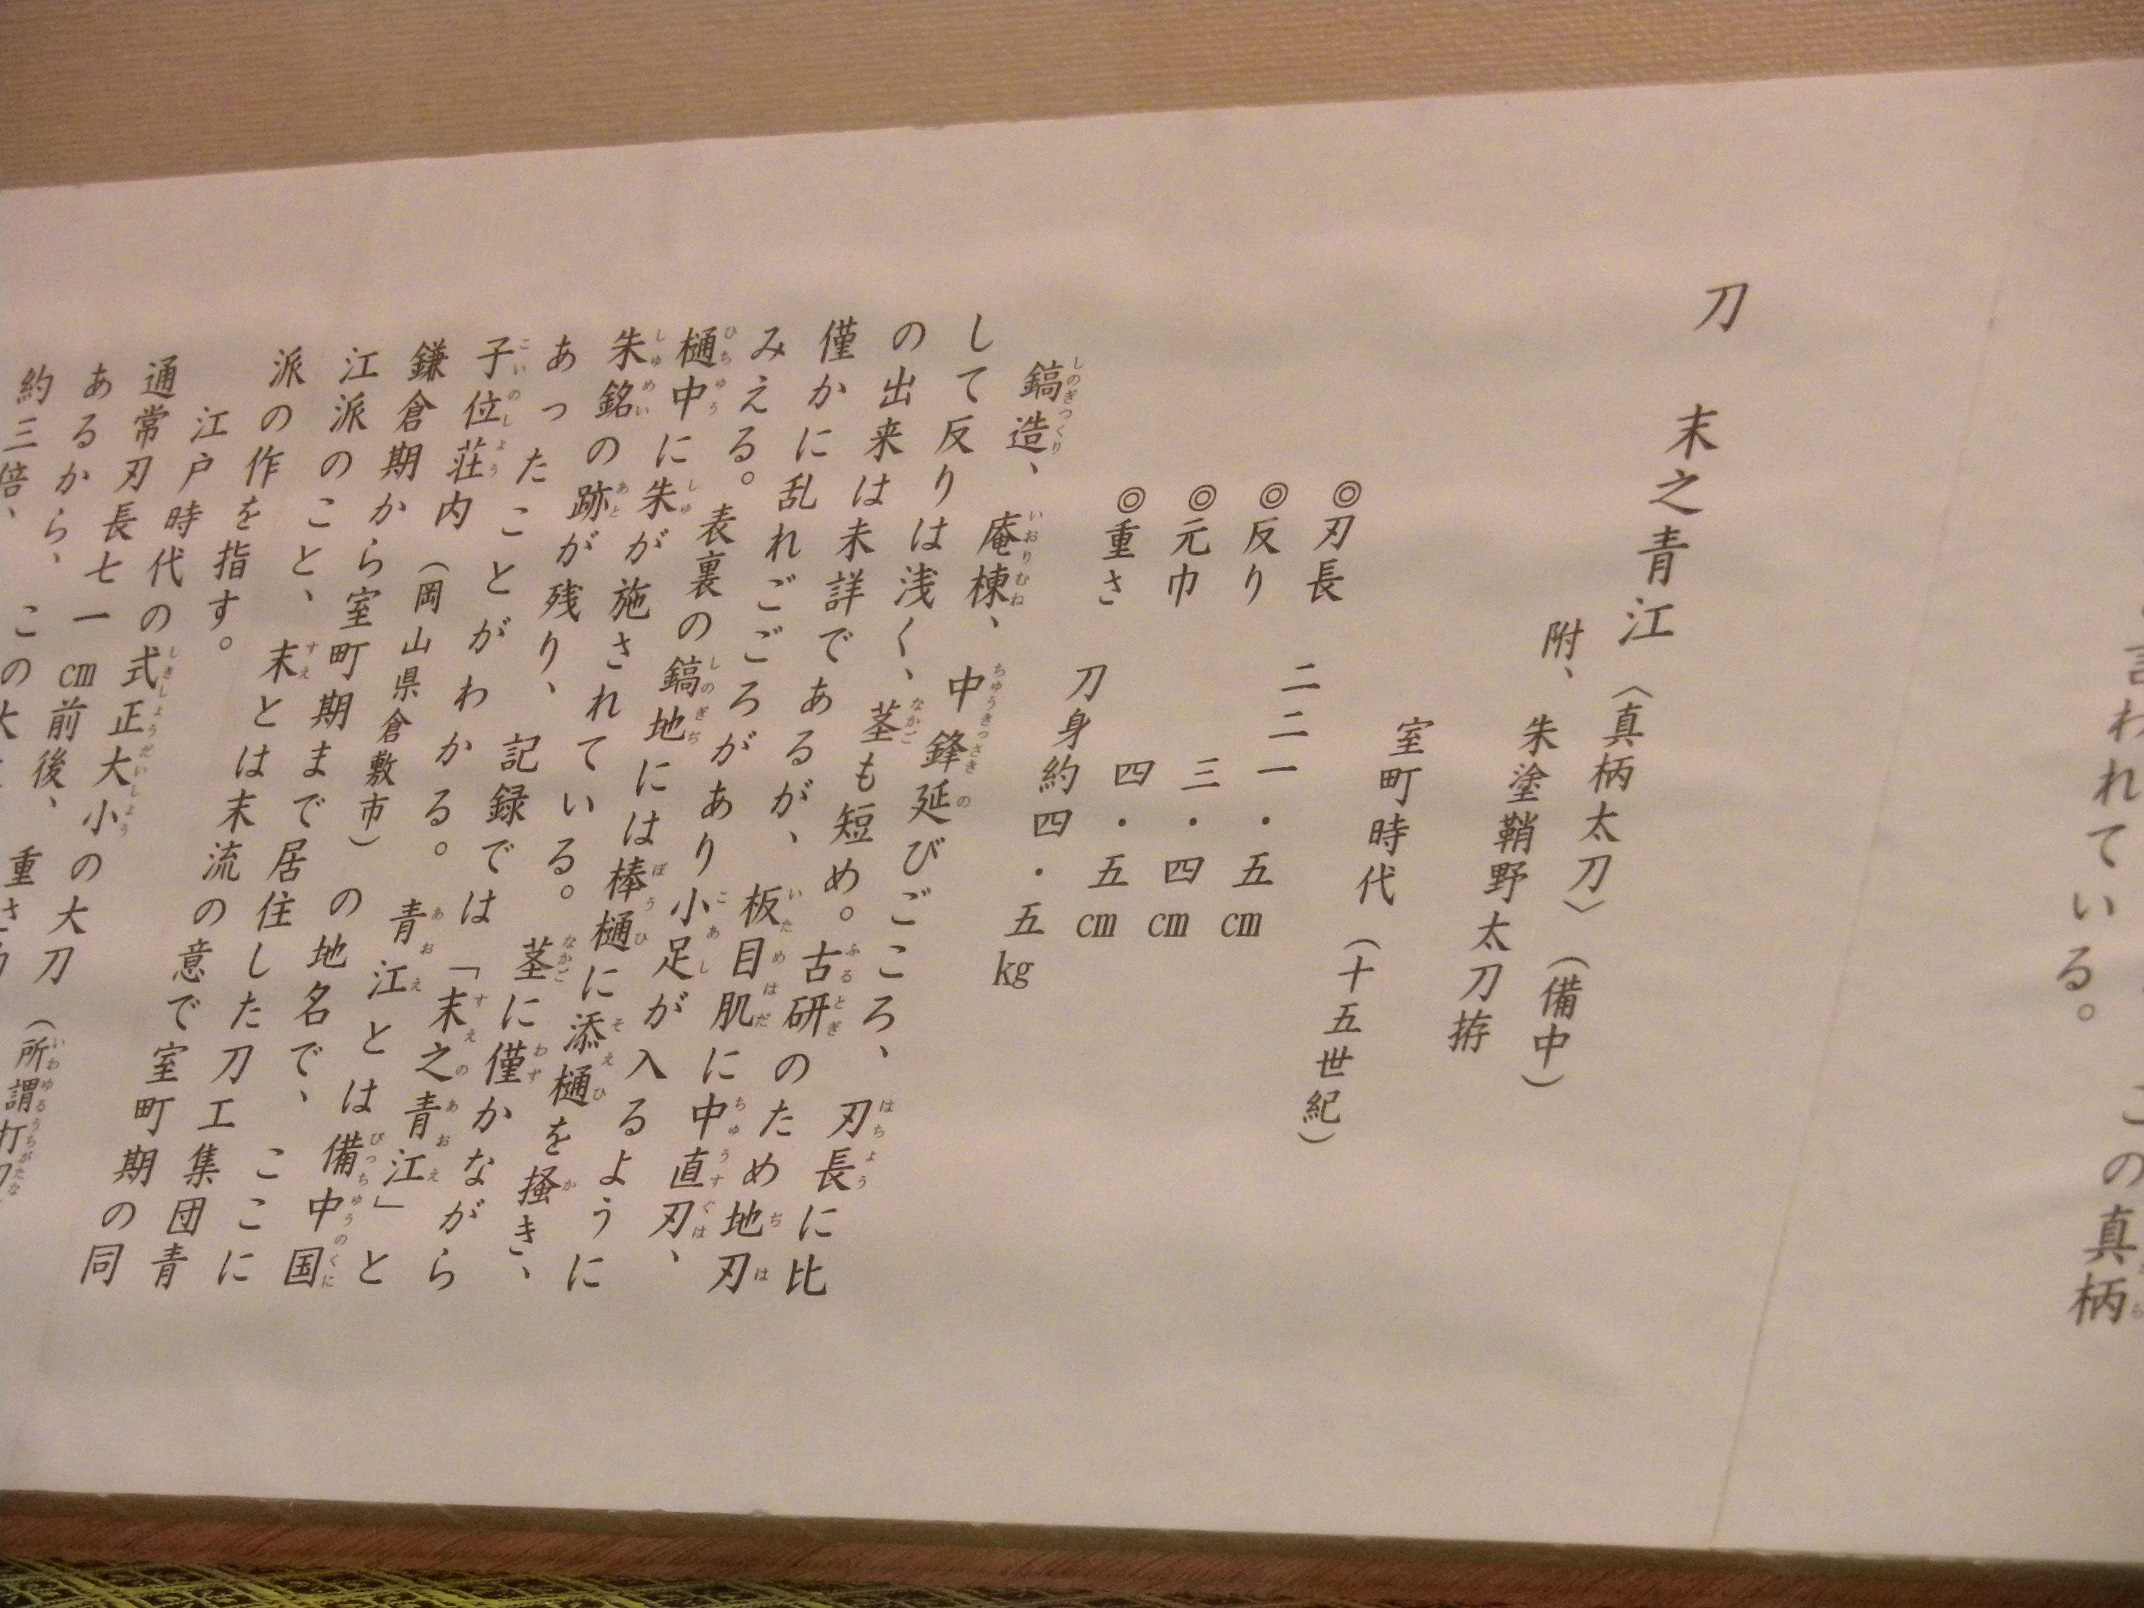 言われている。
この真柄
刀 末之青江〈真柄太刀〉(備中)
附、朱塗鞘野太刀拵
室町時代(十五世紀)
◎刃長 二二一・五㎝
◎反り 三・四㎝
◎元巾 四・五㎝
◎重さ 刀身約四・五㎏
鎬造、庵棟、中鋒延びごころ、刃長に比
して反りは浅く、茎も短め。古研のため地刃
の出来は未詳であるが、板目肌に中直刃、
僅かに乱れごごろがあり小足が入るように
みえる。表裏の鎬地には棒樋に添樋を掻き、
樋中に朱が施されている。茎に僅かながら
朱銘の跡が残り、記録では「末之青江」と
あったことがわかる。青江とは備中国
子位荘内(岡山県倉敷市)の地名で、ここに
鎌倉期から室町期まで居住した刀工集団青
江派のこと、末とは末流の意で室町期の同
派の作を指す。
江戸時代の式正大小の大刀(所謂打刀
通常刃長七一㎝前後、重さ
あるから、この大
約三倍、